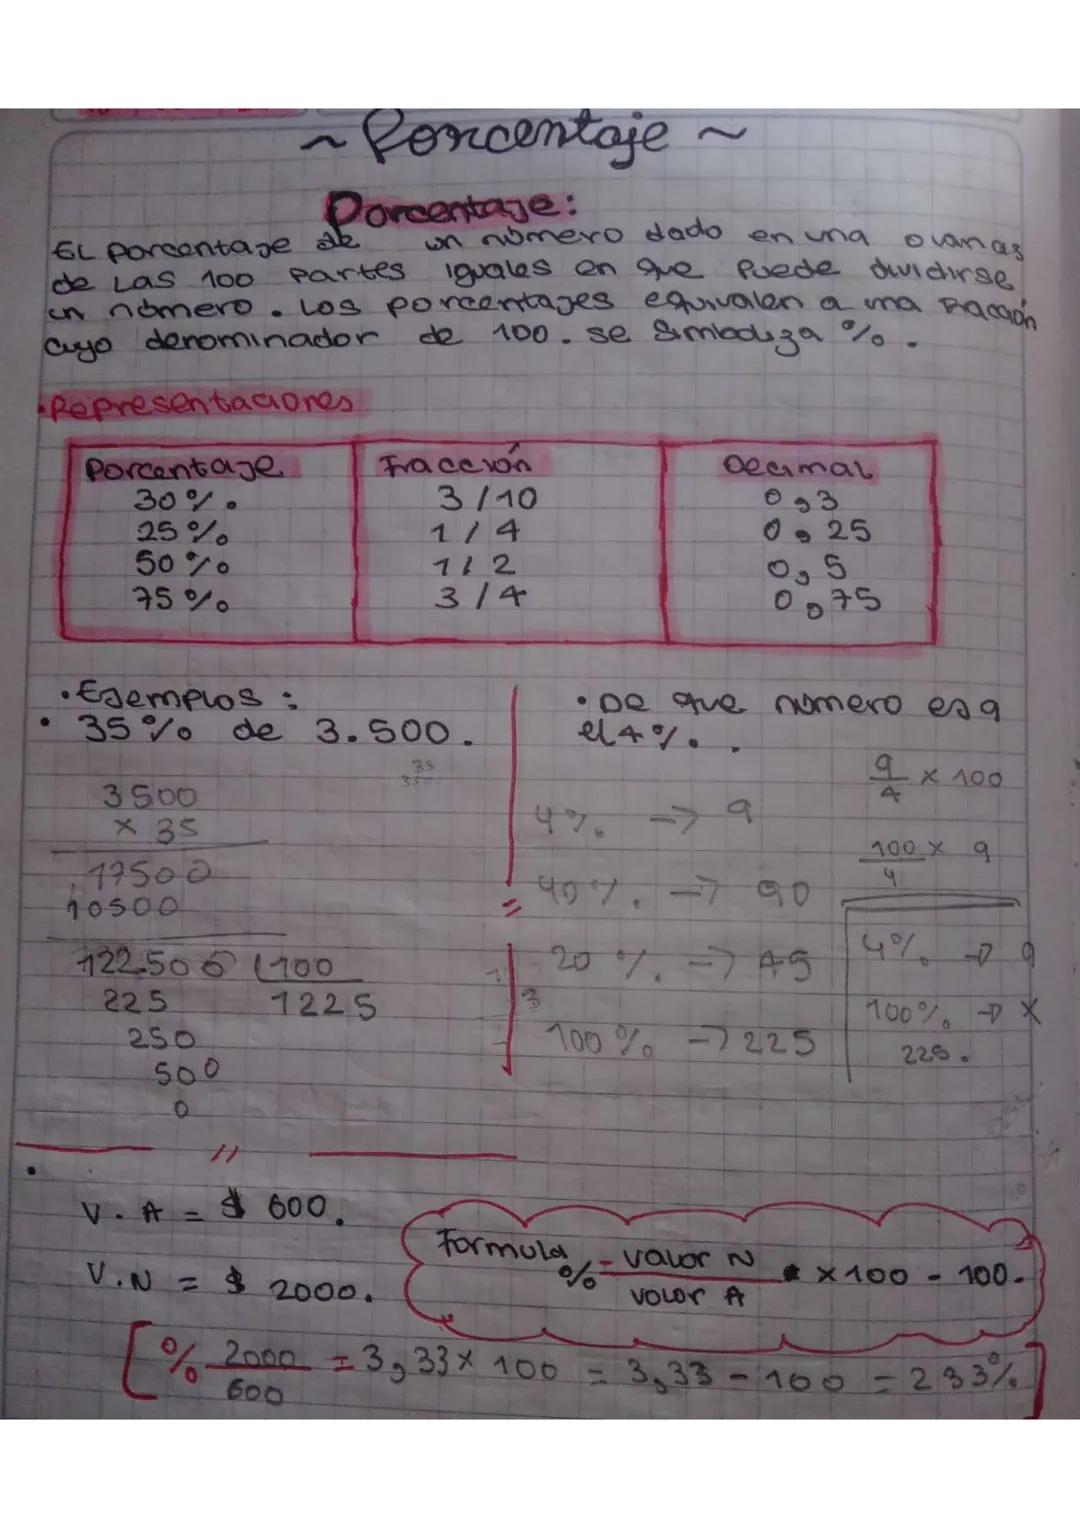 ~ Porcentaje ~
Porcentaje:
EL porcentaje de un número dado en una o varias
de las 100 partes iguales en que puede dividirse
un número. Los porcentajes equivalen a una Fracción
cuyo denominador de 100. se simboliza %.
• Representaciones
Porcentaje Fracción Decimal
30%. 3/10 0,3
25% 1/4 0,25
50% 1/2 0,5
75% 3/4 0,75
• Ejemplos:
• 35% de 3.500.
35
3500
x 35
17500
10500
122.500 100
225 1225
250
500
0
• De que número es 9
el 4%.
9/4 x 100
4% → 9
100/4 x 9
40% → 90
20% → 45
100% → 225
4% → 9
100% → X
225.
V. A = $ 600.
V. N = $ 2000.
Formula % = valor N / valor A x 100 - 100.
[% 2000/600 = 3,33 x 100 = 3,33 - 100 = 233%]